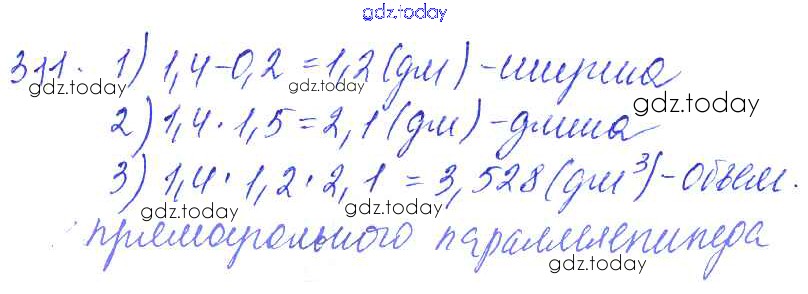 gdz.today
311. 1) 1,4-0,2=1,2(дм)-ширина
gdz.today gdz.today gdz.today
2) 1,4·1,5=2,1(дм)-длина
3) 1,4·1,2·2,1=3,528(дм³)-объем.
gdz.today gdz.today gdz.today
прямоугольного параллелепипеда
gdz.today